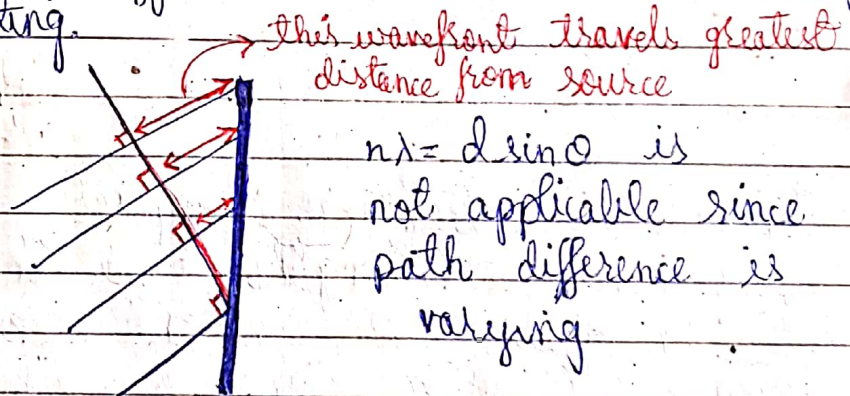 ting.
this wavefront travels greatest
distance from source
nλ = d sinθ is
not applicable since
path difference is
varying